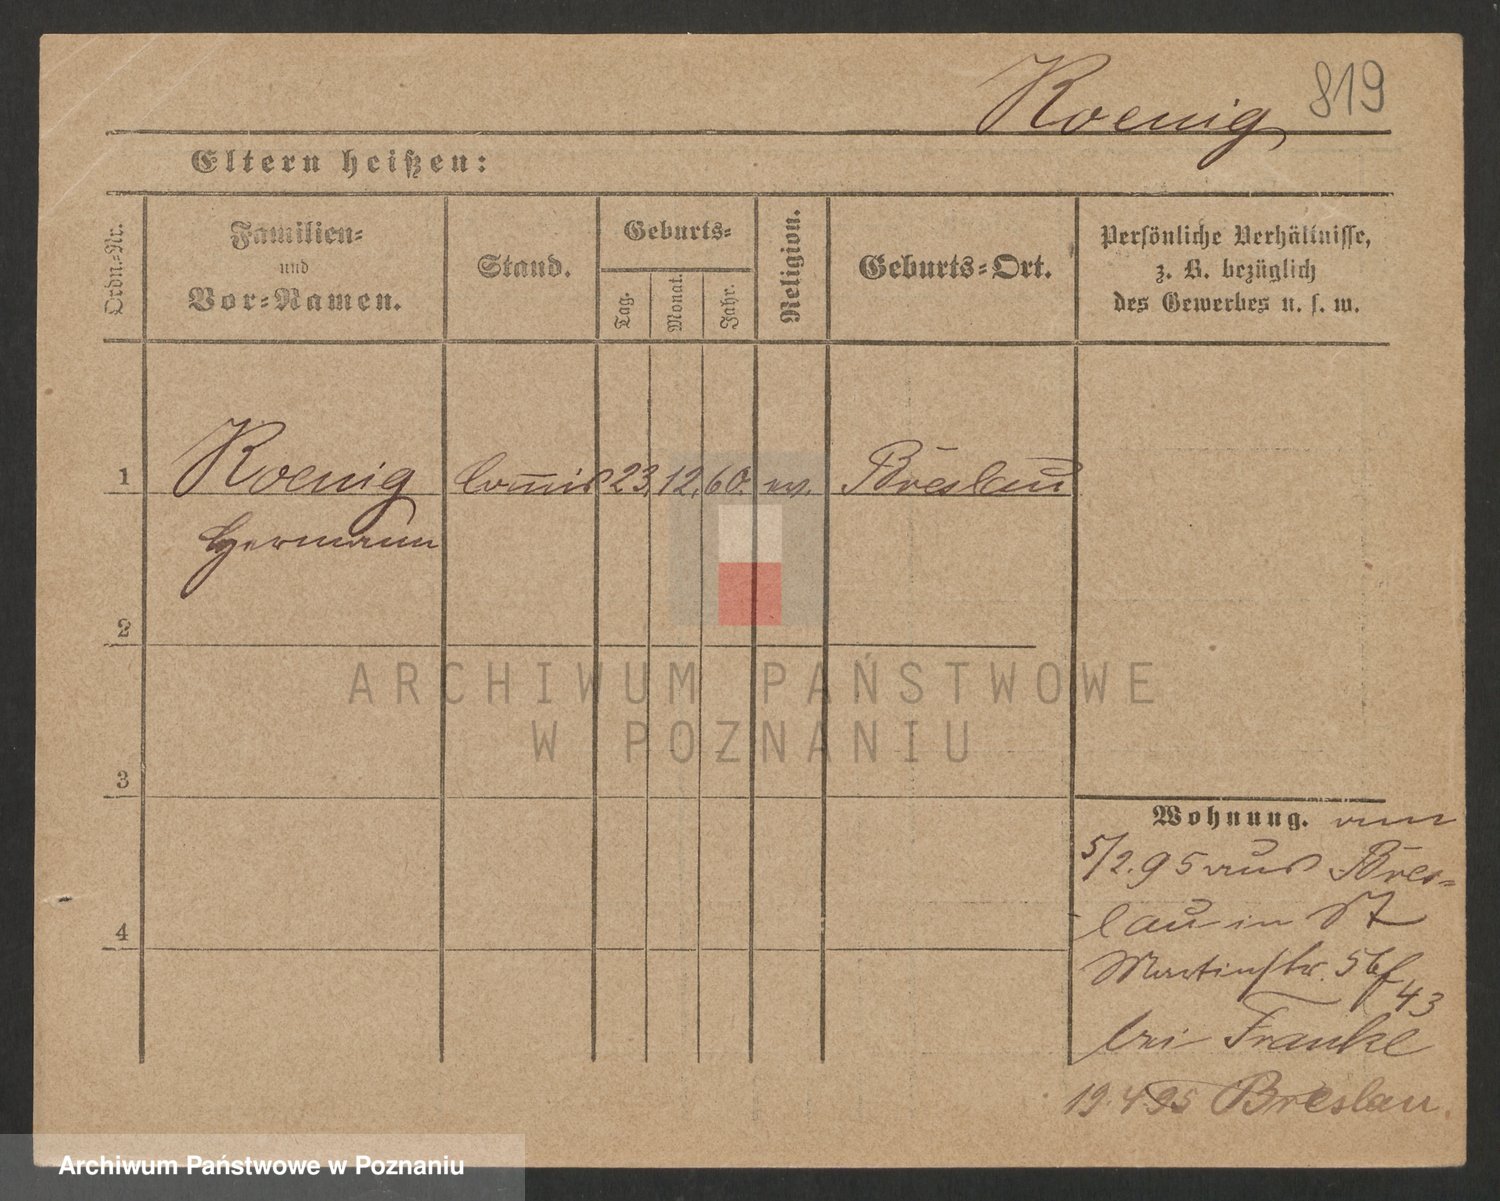 Koenig 819
Eltern heißen:
Ordn.-Nr.
Familien-
und
Vor-Namen.
Stand.
Geburts-
Tag.
Monat.
Jahr.
Religion.
Geburts-Ort.
Persönliche Verhältnisse,
z. B. bezüglich
des Gewerbes u. s. w.
1 Koenig Commis 23. 12. 60. Breslau
Hermann
2
3
4
Wohnung. am
5/2.95 aus Bres-
lau in St
Martinstr. 56/43
bei Franke
19.4.95 Breslau.
ARCHIWUM PAŃSTWOWE
W POZNANIU
Archiwum Państwowe w Poznaniu